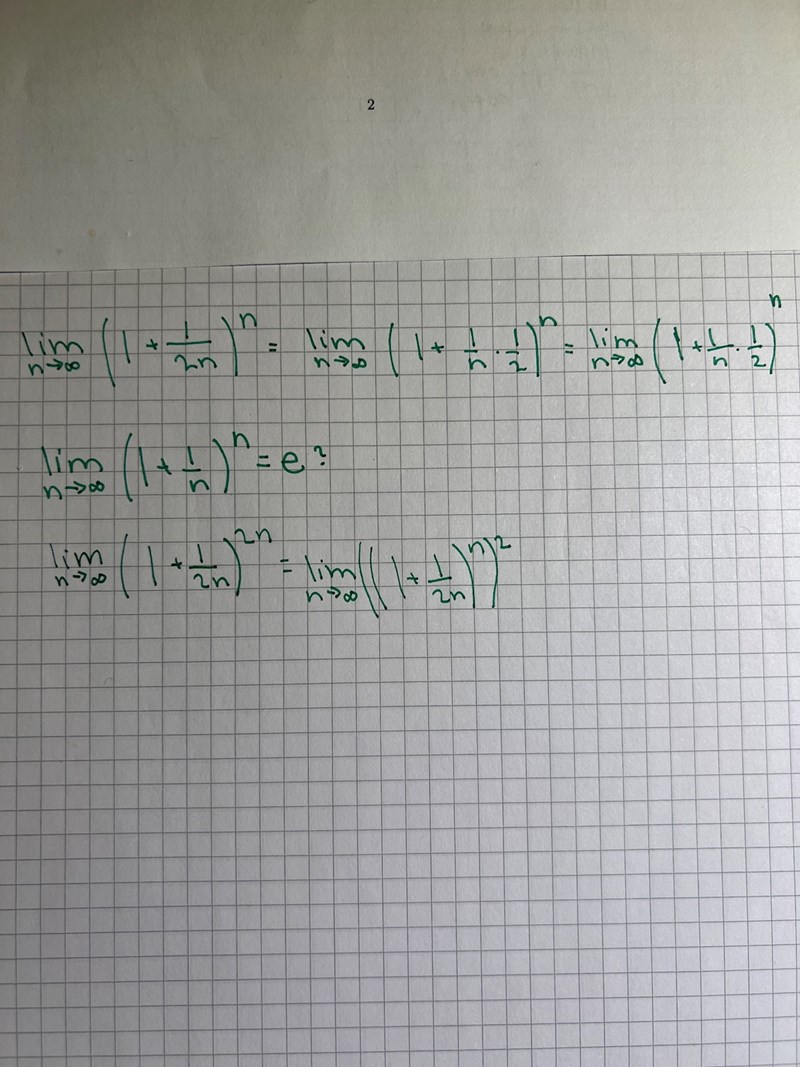 2
lim n→∞ (1 + 1/2n)^n = lim n→∞ (1 + 1/n · 1/2)^n = lim n→∞ (1 + 1/n · 1/2)^n
lim n→∞ (1 + 1/n)^n = e?
lim n→∞ (1 + 1/2n)^2n = lim n→∞ ((1 + 1/2n)^n)^2